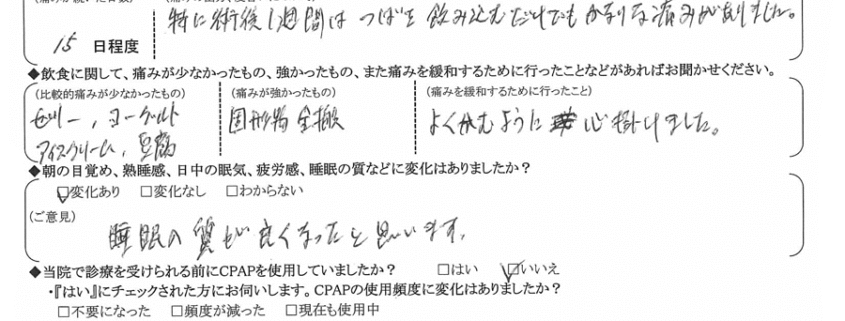 特に術後1週間は つばを飲み込むだけでもかなりな痛みがありました。
15 日程度
◆飲食に関して、痛みが少なかったもの、強かったもの、また痛みを緩和するために行ったことなどがあればお聞かせください。
(比較的痛みが少なかったもの) (痛みが強かったもの) (痛みを緩和するために行ったこと)
ゼリー, ヨーグルト 固形物全般 よくかむように心掛けました。
アイスクリーム, 豆腐
◆朝の目覚め、熟睡感、日中の眠気、疲労感、睡眠の質などに変化はありましたか?
☑変化あり □変化なし □わからない
(ご意見)
睡眠の質が良くなったと思います。
◆当院で診療を受けられる前にCPAPを使用していましたか? □はい ☑いいえ
・『はい』にチェックされた方にお伺いします。CPAPの使用頻度に変化はありましたか?
□不要になった □頻度が減った □現在も使用中